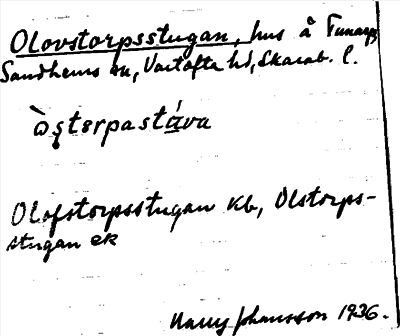 Olovstorpsstugan, hus å Tunarps
Sandhems sn, Vartofta hd, Skarab. l.
òsterpastáva
Olofstorpsstugan kb, Olstorps-
stugan ek
Harry Johansson 1936.